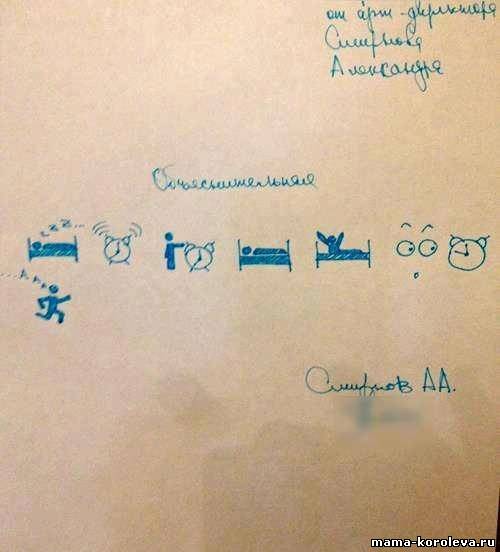 от арт-директора
Смирнова
Александра
Объяснительная
zzz...
Смирнов А.А.
mama-koroleva.ru